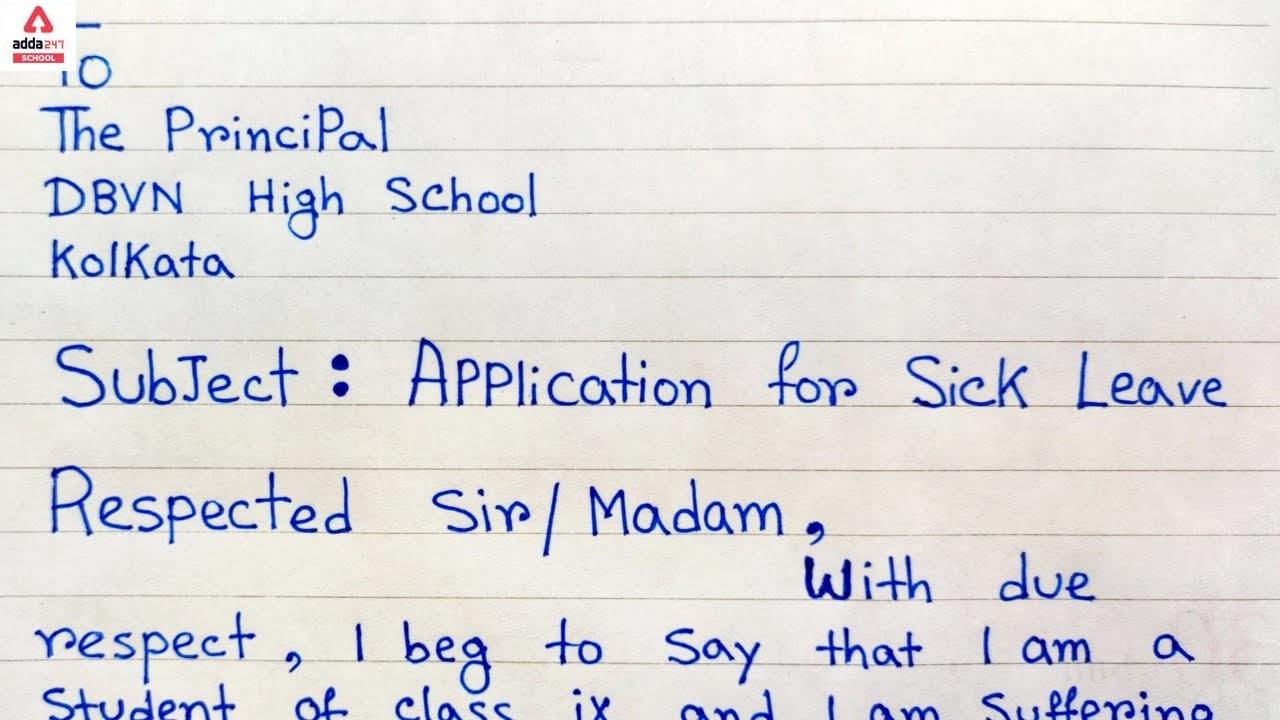 adda247
SCHOOL
To
The PrinciPal
DBVN High School
Kolkata
SubJect: Application for Sick Leave
Respected Sir/Madam,
With due
respect, I beg to say that I am a
Student of class ix and I am Suffering